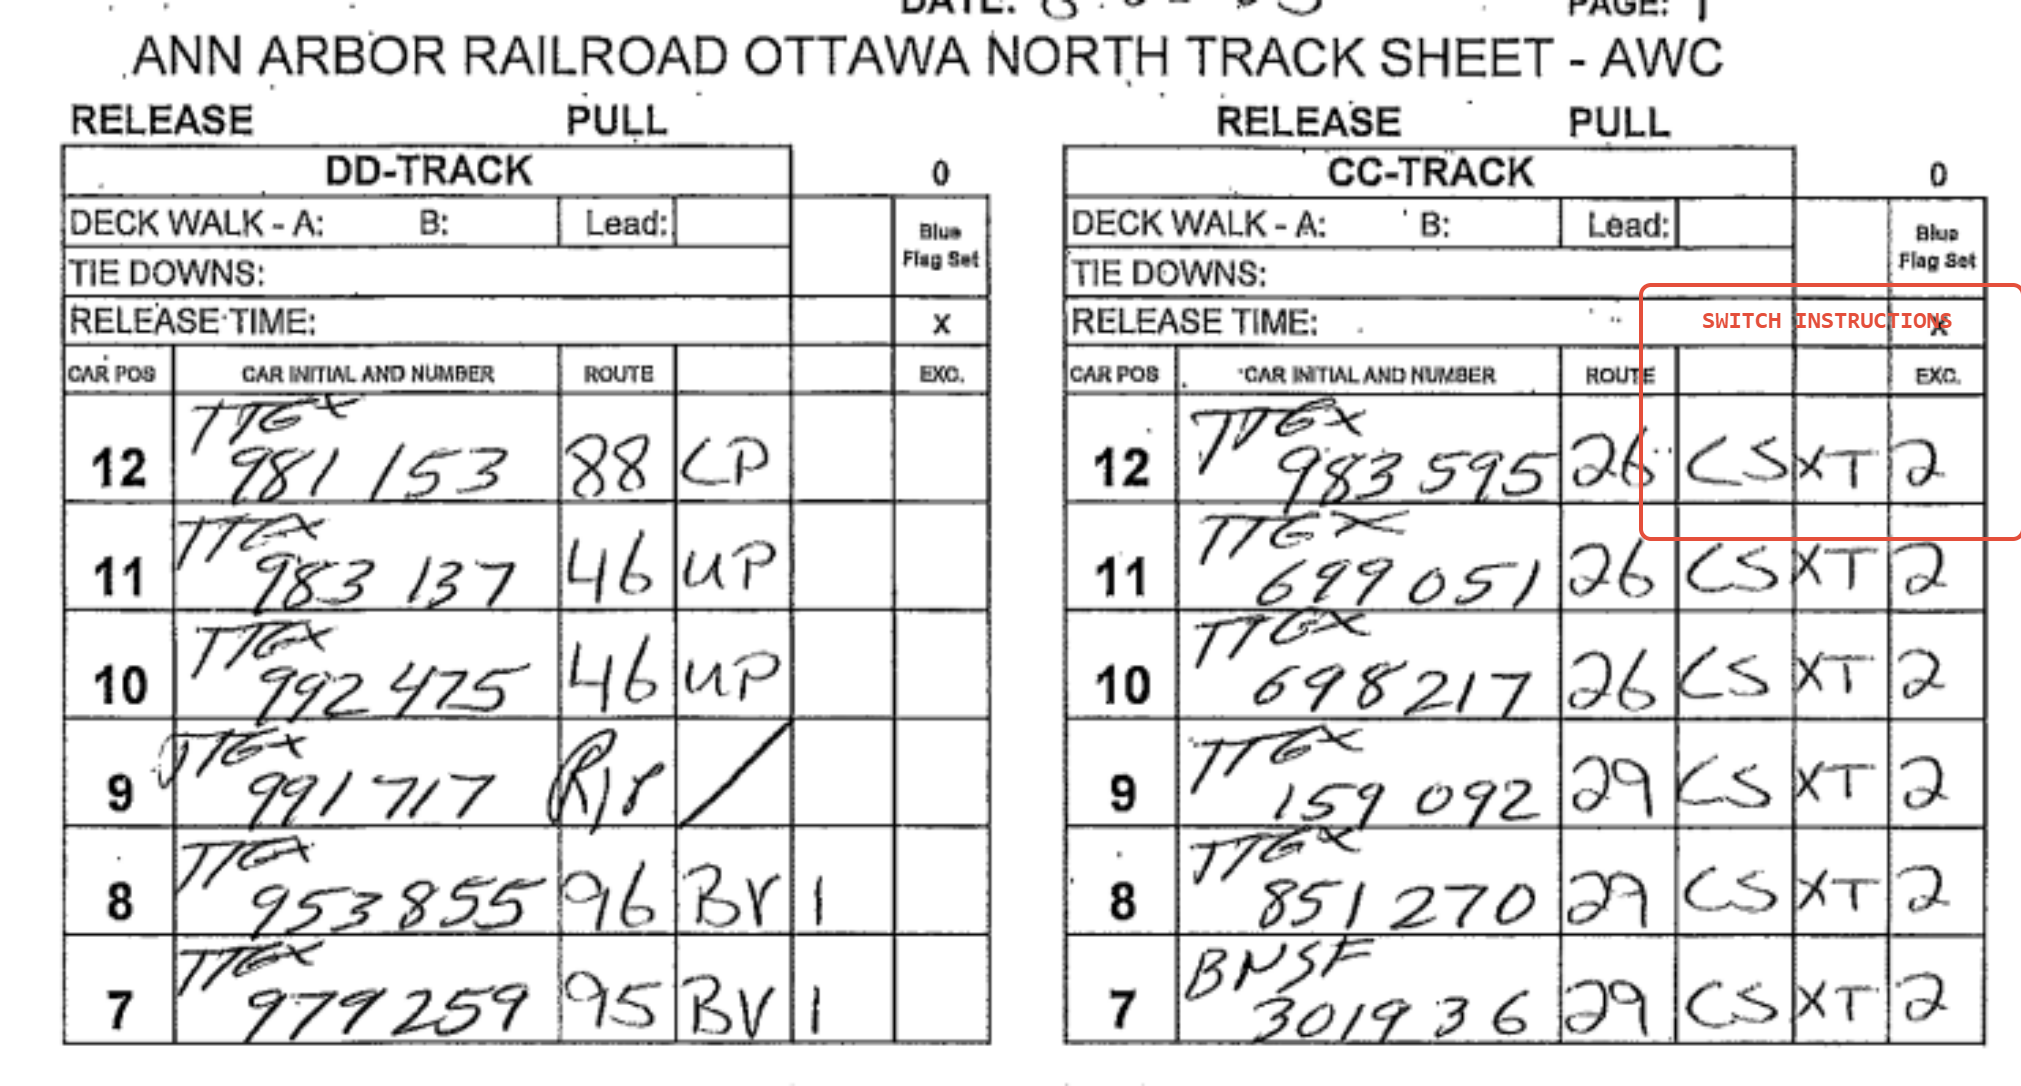 ANN ARBOR RAILROAD OTTAWA NORTH TRACK SHEET - AWC
RELEASE PULL
DD-TRACK 0
DECK WALK - A: B: Lead: Blue Flag Set
TIE DOWNS:
RELEASE TIME: X
CAR POS CAR INITIAL AND NUMBER ROUTE EXC.
12 TTGX 981 153 88 CP
11 TTGX 983 137 46 UP
10 TTGX 992 475 46 UP
9 TTGX 991 717 Rip /
8 TTGX 953 855 96 BV 1
7 TTGX 979 259 95 BV 1
RELEASE PULL
CC-TRACK 0
DECK WALK - A: B: Lead: Blue Flag Set
TIE DOWNS:
RELEASE TIME: X
SWITCH INSTRUCTIONS
CAR POS CAR INITIAL AND NUMBER ROUTE EXC.
12 TTGX 983 595 26 CSXT 2
11 TTGX 699 051 26 CSXT 2
10 TTGX 698217 26 CSXT 2
9 TTGX 159 092 29 CSXT 2
8 TTGX 851 270 29 CSXT 2
7 BNSF 301936 29 CSXT 2